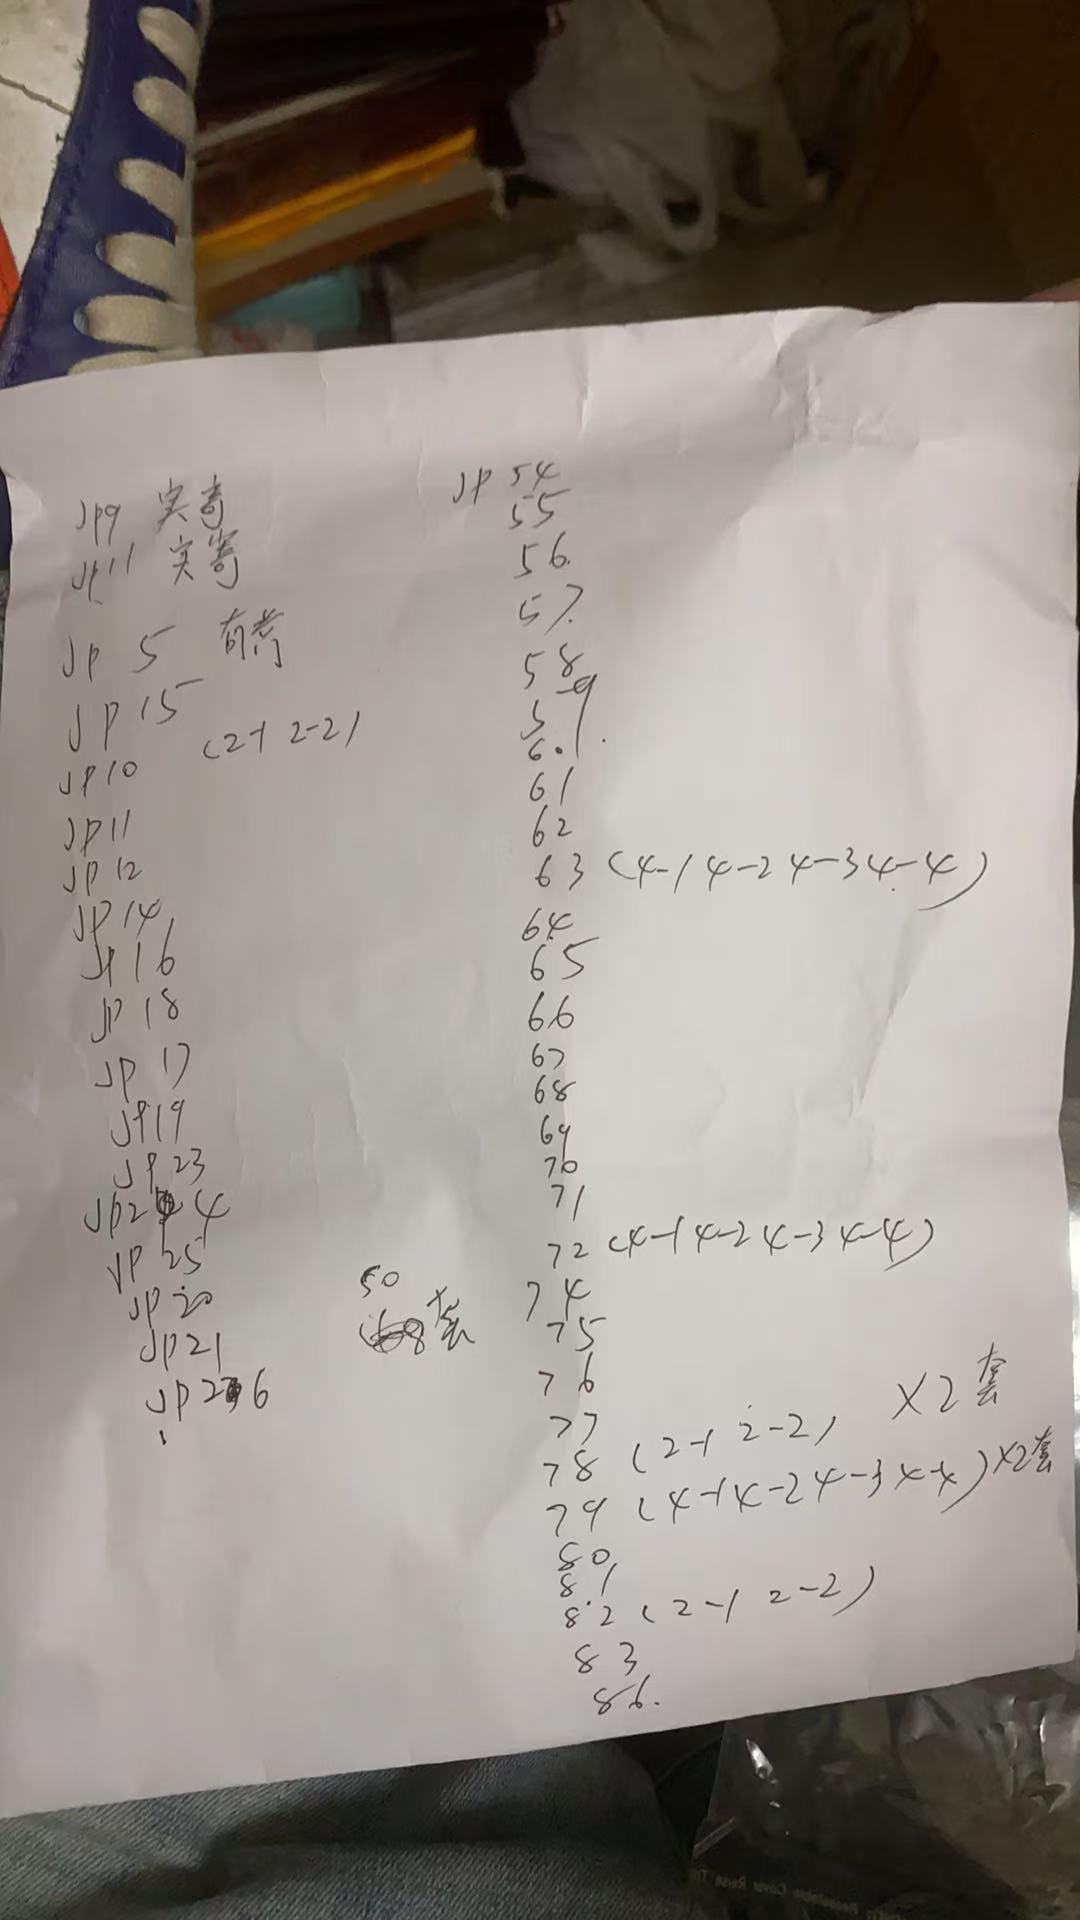 JP9 实寄
JP11 实寄
JP 5 有荒
JP 15
(2-1 2-2)
JP10
JP11
JP12
JP14
JP16
JP 18
JP 17
JP19
JP 23
JP24
JP 25
JP 20
JP21
JP26
50
套
JP 54
55
56.
57.
58
59
60.
61
62
63 (4-1 4-2 4-3 4-4)
64
65
66
67
68
69
70
71
72 (4-1 4-2 4-3 4-4)
74
75
76
77
78 (2-1 2-2) X2套
79 (4-1 4-2 4-3 4-4) X2套
80
81
82 (2-1 2-2)
83
86.